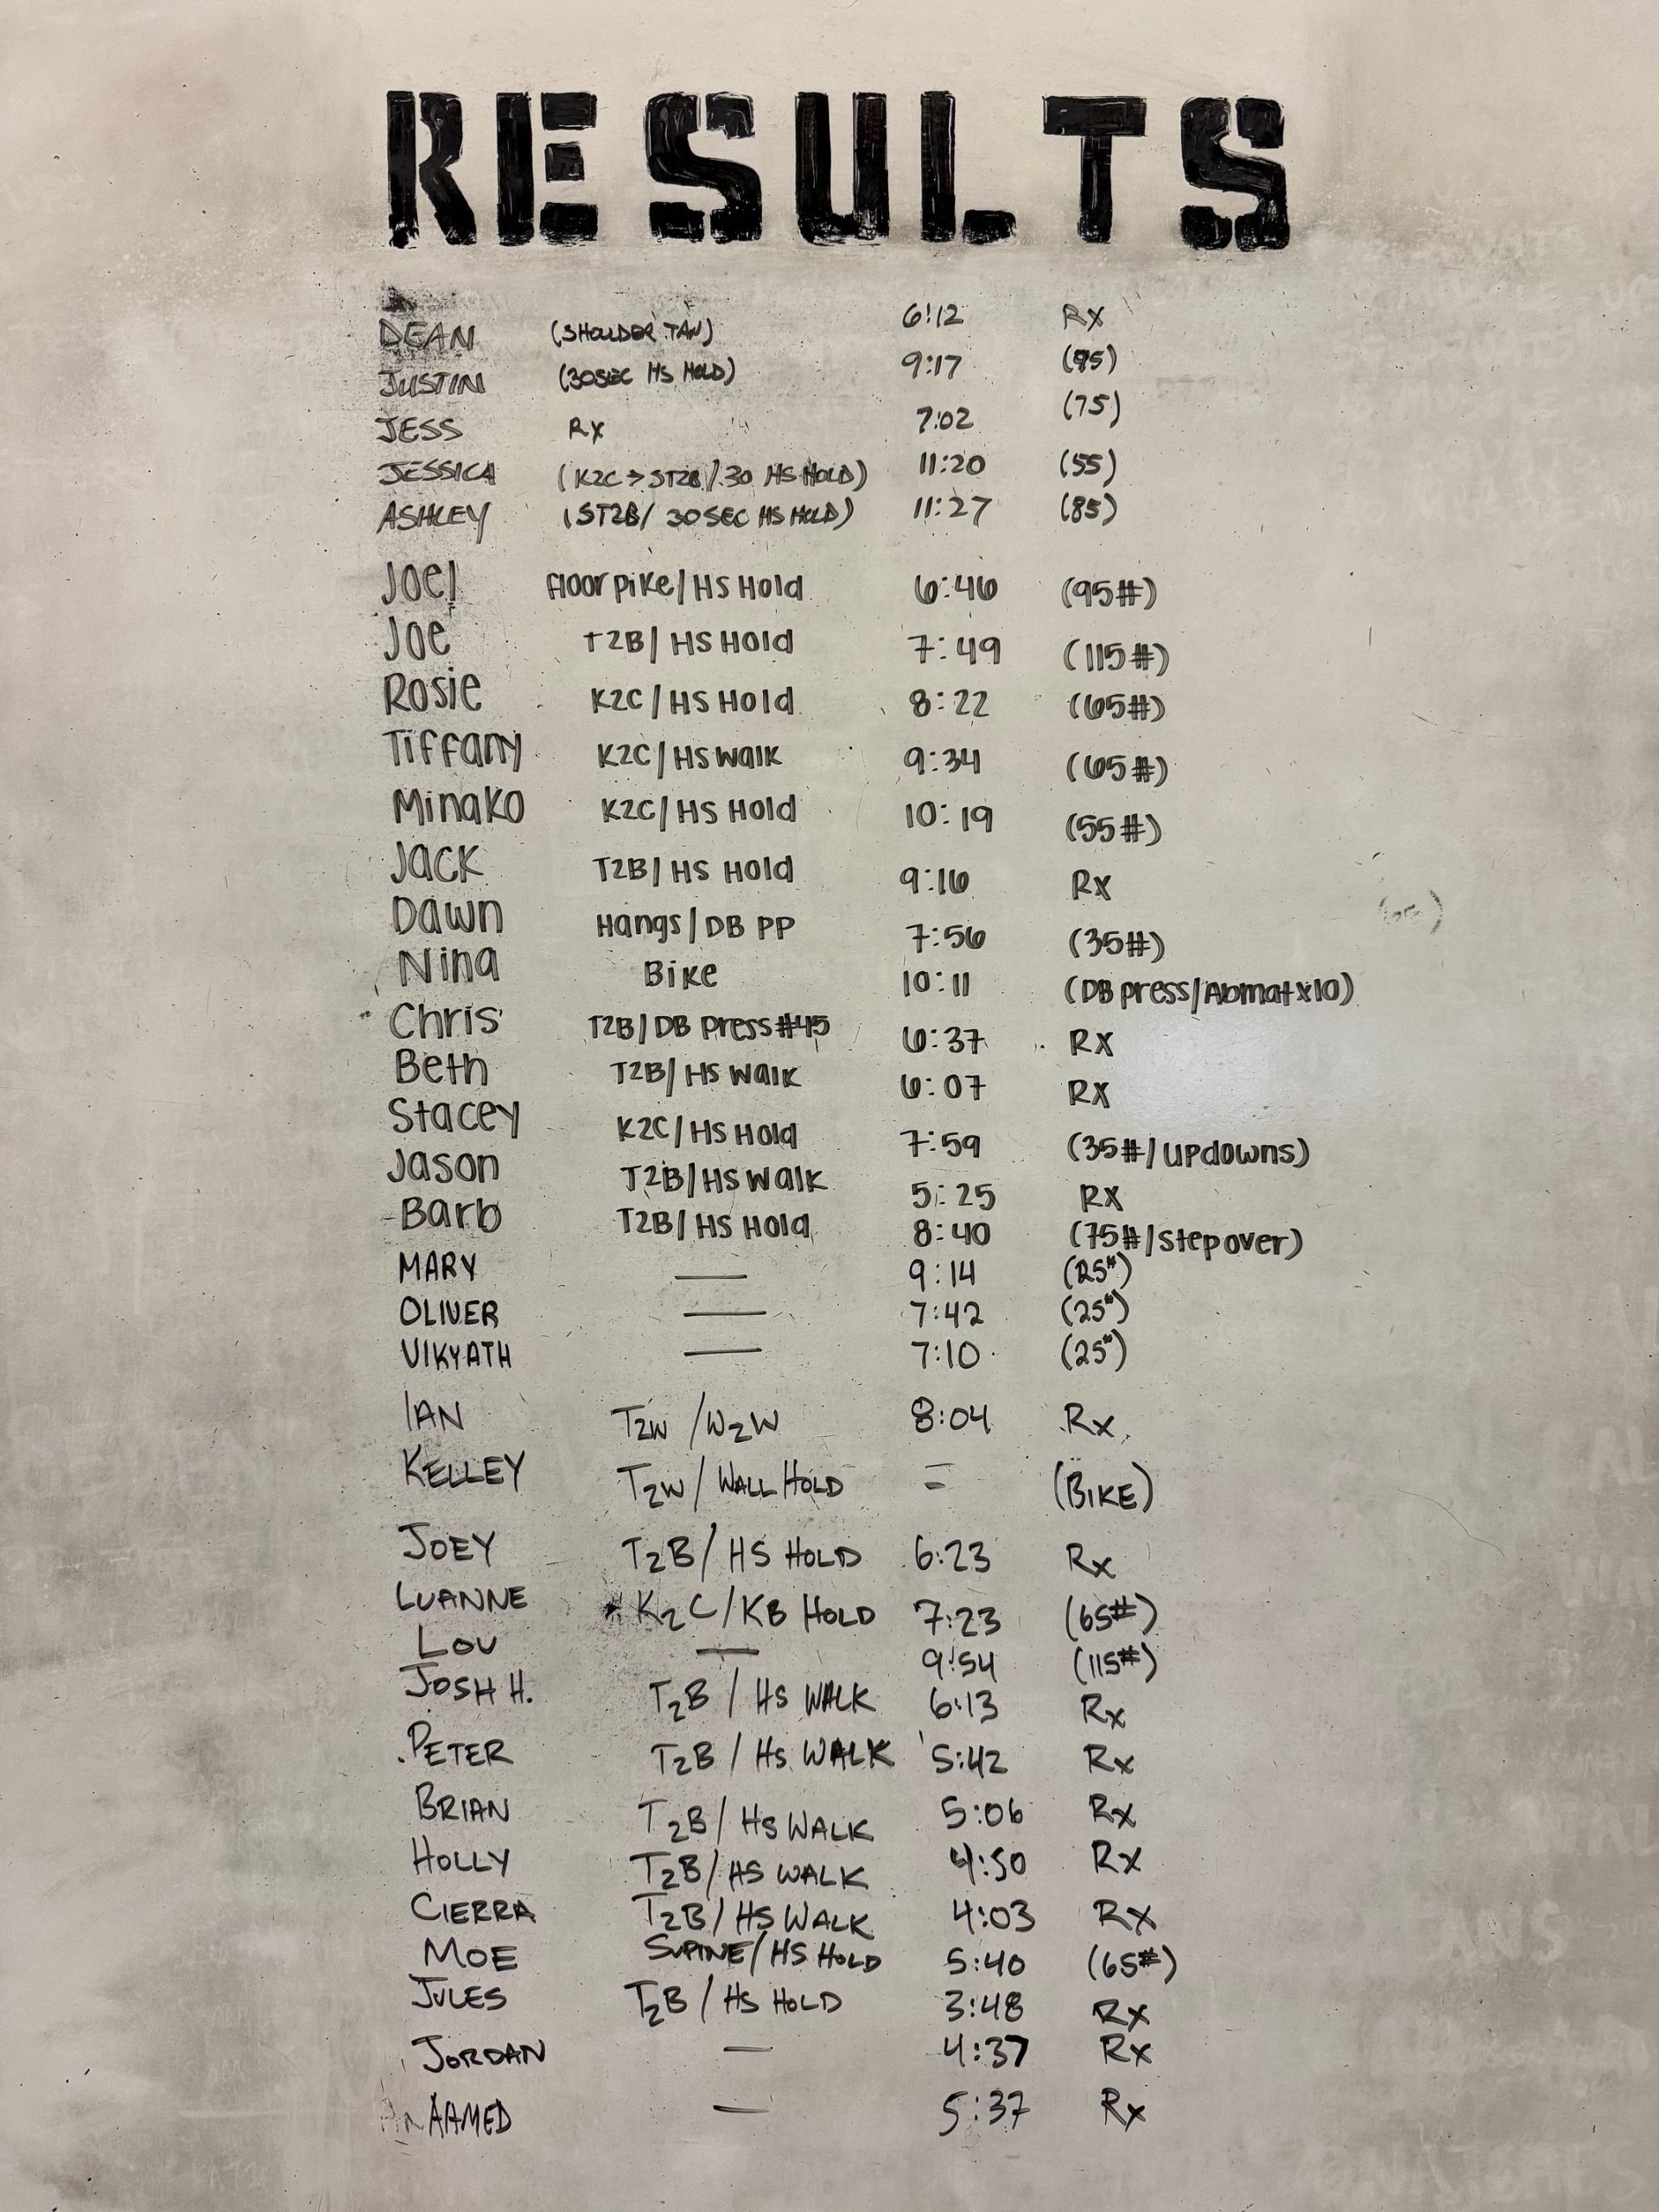 RESULTS
DEAN (SHOULDER TAN) 6:12 Rx
JUSTIN (30SEC HS HOLD) 9:17 (95)
JESS Rx 7:02 (75)
JESSICA (K2C > ST2B/.30 HS HOLD) 11:20 (55)
ASHLEY (ST2B/ 30SEC HS HOLD) 11:27 (85)
Joel floor pike/HS Hold 6:46 (95#)
Joe T2B/HS Hold 7:49 (115#)
Rosie K2C/HS Hold 8:22 (65#)
Tiffany K2C/HS Walk 9:34 (65#)
Minako K2C/HS Hold 10:19 (55#)
Jack T2B/HS Hold 9:16 Rx
Dawn Hangs/DB PP 7:56 (35#)
Nina Bike 10:11 (DB press/Abmat x10)
Chris T2B/DB Press #45 6:37 Rx
Beth T2B/HS Walk 6:07 Rx
Stacey K2C/HS Hold 7:59 (35#/updowns)
Jason T2B/HS Walk 5:25 Rx
Barb T2B/HS Hold 8:40 (75#/step over)
MARY — 9:14 (25#)
OLIVER — 7:42 (25#)
VIKYATH — 7:10 (25#)
IAN T2W/W2W 8:04 Rx
KELLEY T2W/WALL HOLD – (BIKE)
JOEY T2B/HS HOLD 6:23 Rx
LUANNE K2C/KB HOLD 7:23 (65#)
LOU — 9:54 (115#)
JOSH H. T2B/HS WALK 6:13 Rx
PETER T2B/HS WALK 5:42 Rx
BRIAN T2B/HS WALK 5:06 Rx
HOLLY T2B/HS WALK 4:50 Rx
CIERRA T2B/HS WALK 4:03 Rx
MOE SUPINE/HS HOLD 5:40 (65#)
JULES T2B/HS HOLD 3:48 Rx
JORDAN — 4:37 Rx
AAMED — 5:37 Rx